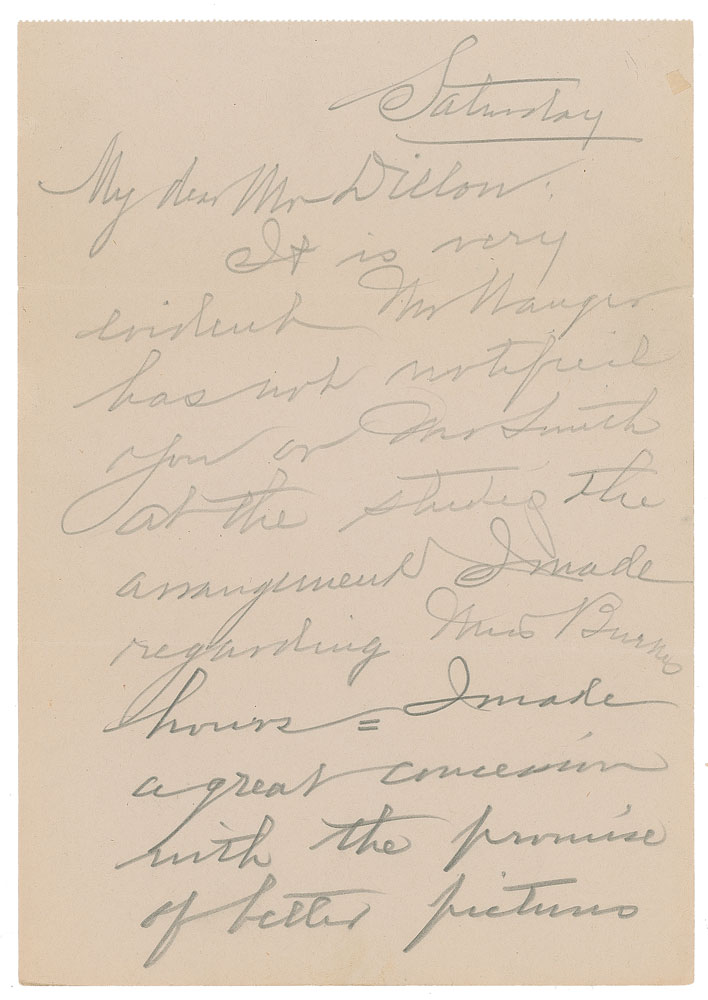 Saturday
My dear Mr Dillon.
It is very
evident Mr Wanger
has not notified
you or Mr Smith
at the studio the
arrangement I made
regarding Miss Burke's
hours = I made
a great concession
with the promise
of better pictures